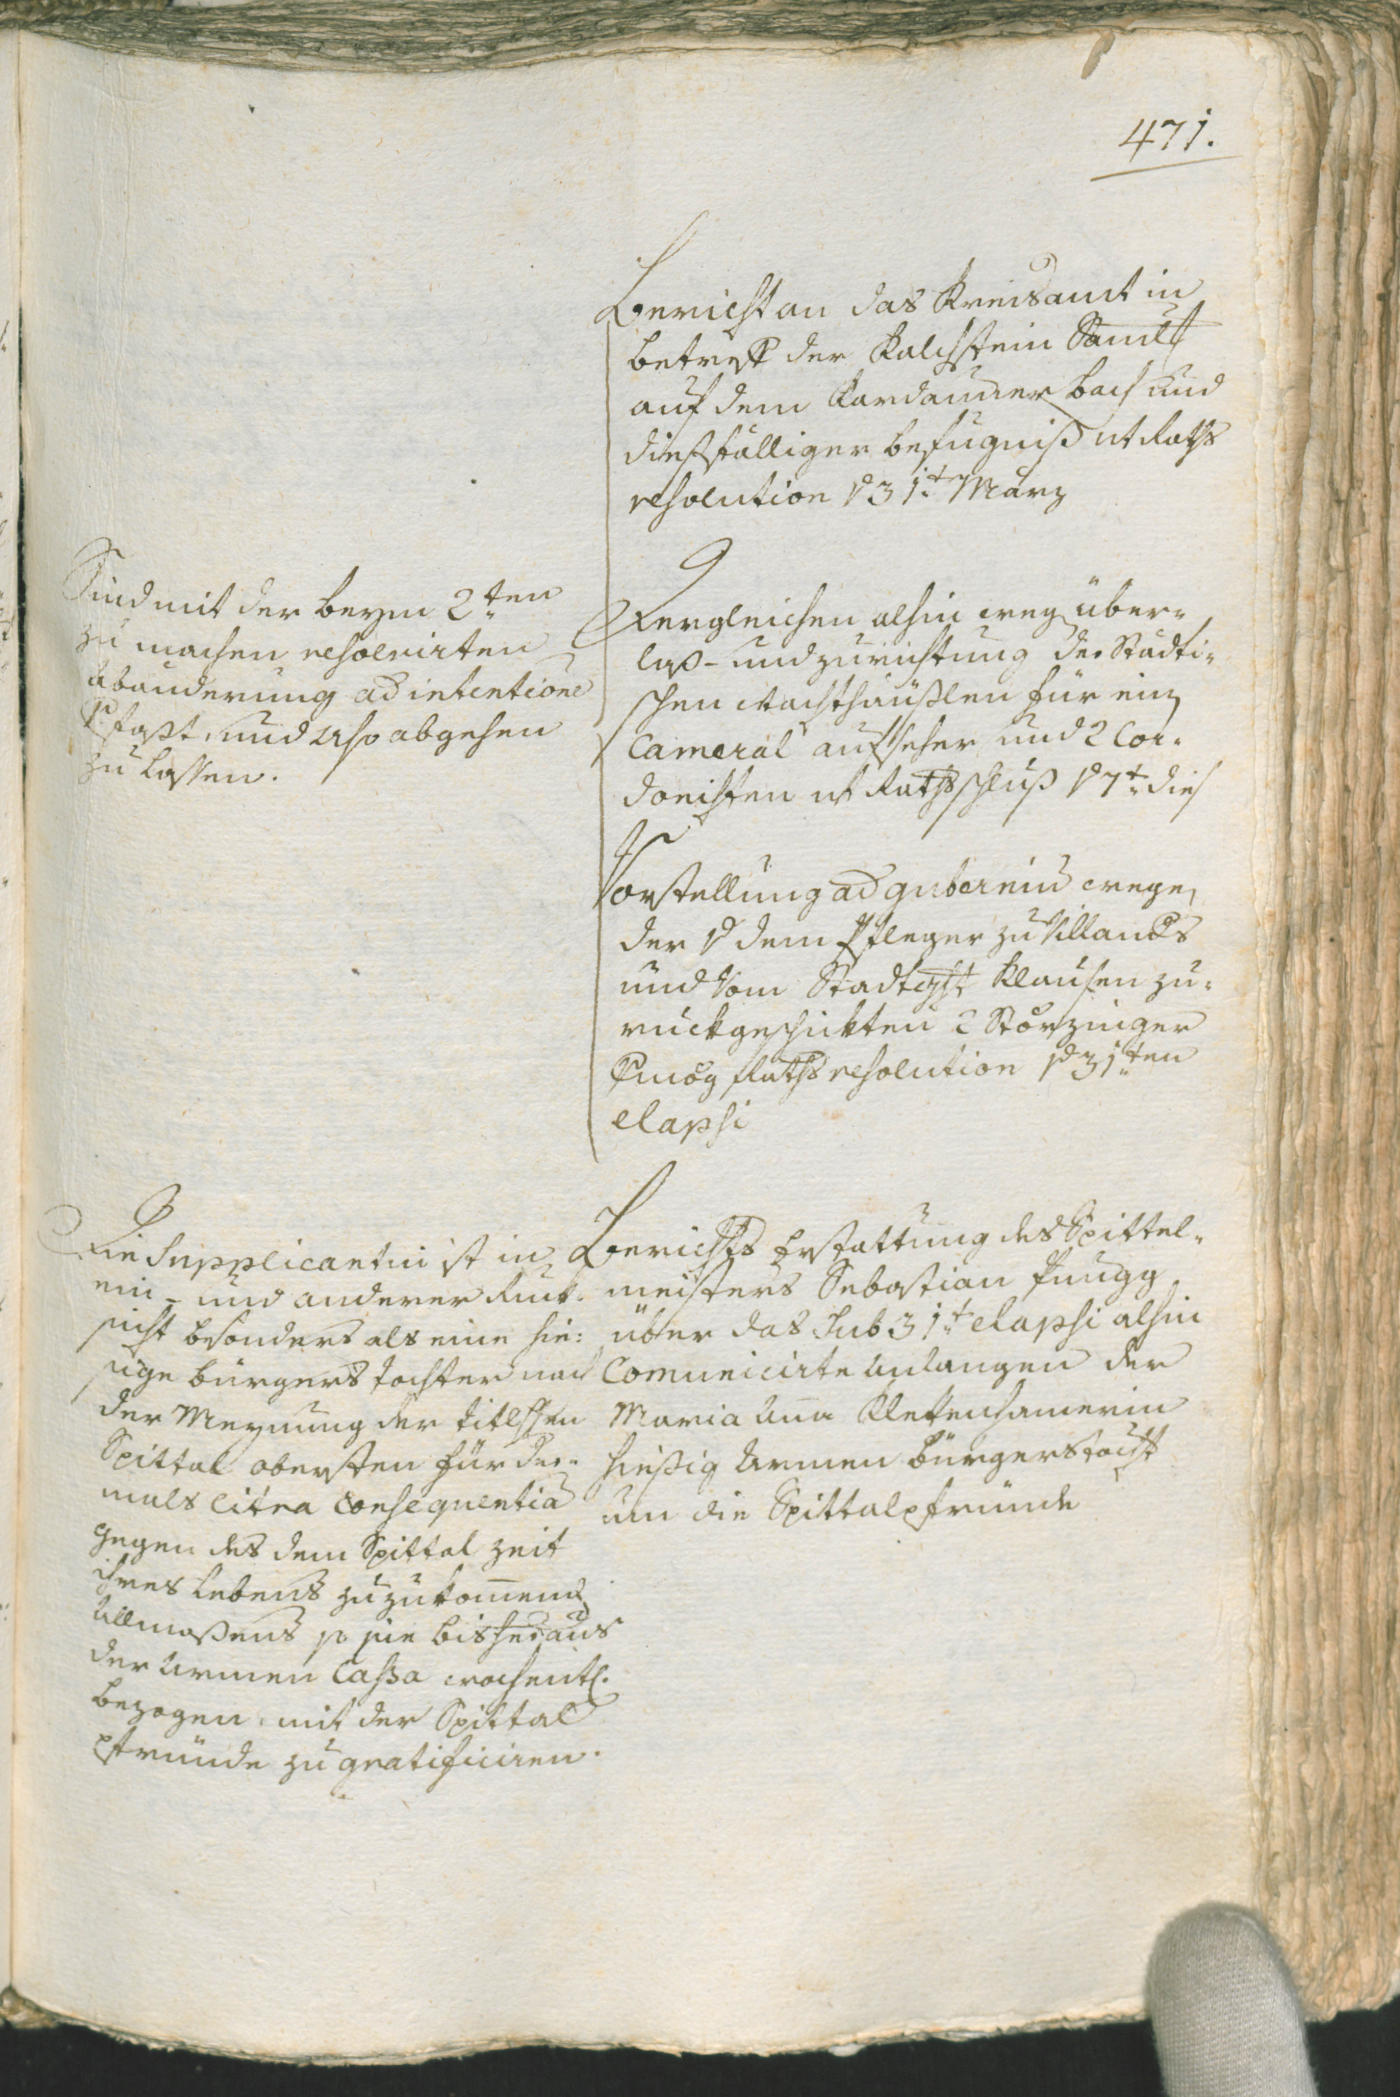 471.
Bericht an das Kreisamt in
betreff der Kalchstein Saml
auf dem Kardauner bach und
diesfälliger befugniß ut Raths
resolution de 31t März
Sind mit der beym 2ten
zu machen resolvirten
abänderung ad intentione
verfaßt, und also abgehen
zu lassen.
Dergleichen alhin weg. über-
laß- und zurichtung der Städti-
schen Wachthäußlen für ein
Cameral aufseher und 2 Cor-
donisten ut Rathsschluß de 7t dies
Vorstellung ad guberniu wegen
der v dem Pfleger zu Villanders
und vom Stadtgcht Klausen zu-
ruckgeschickten 2 Störzinger
vermög Rathsresolution de 31ten
elapsi
Die Supplicantin ist in
ein- und anderer Ruk-
sicht besonders als eine hie-
sige bürgers tochter nach
der Meynung der titlschen
Spittal obersten für der-
mals citra consequentia
gegen des dem Spittal zeit
ihres Lebens zuzukomend
Allmoßens so sie bisher aus
der Armen Cassa wochentl.
bezogen, mit der Spittal
pfründe zu gratificiren.
Berichts Erstattung des Spittel-
meisters Sebastian Pungg
über das sub 31t elapsi alhin
Comunicirte Anlangen der
Maria Ana Klettenhamerin
hießig Armen bürgerstocht
um die Spittalpfründe